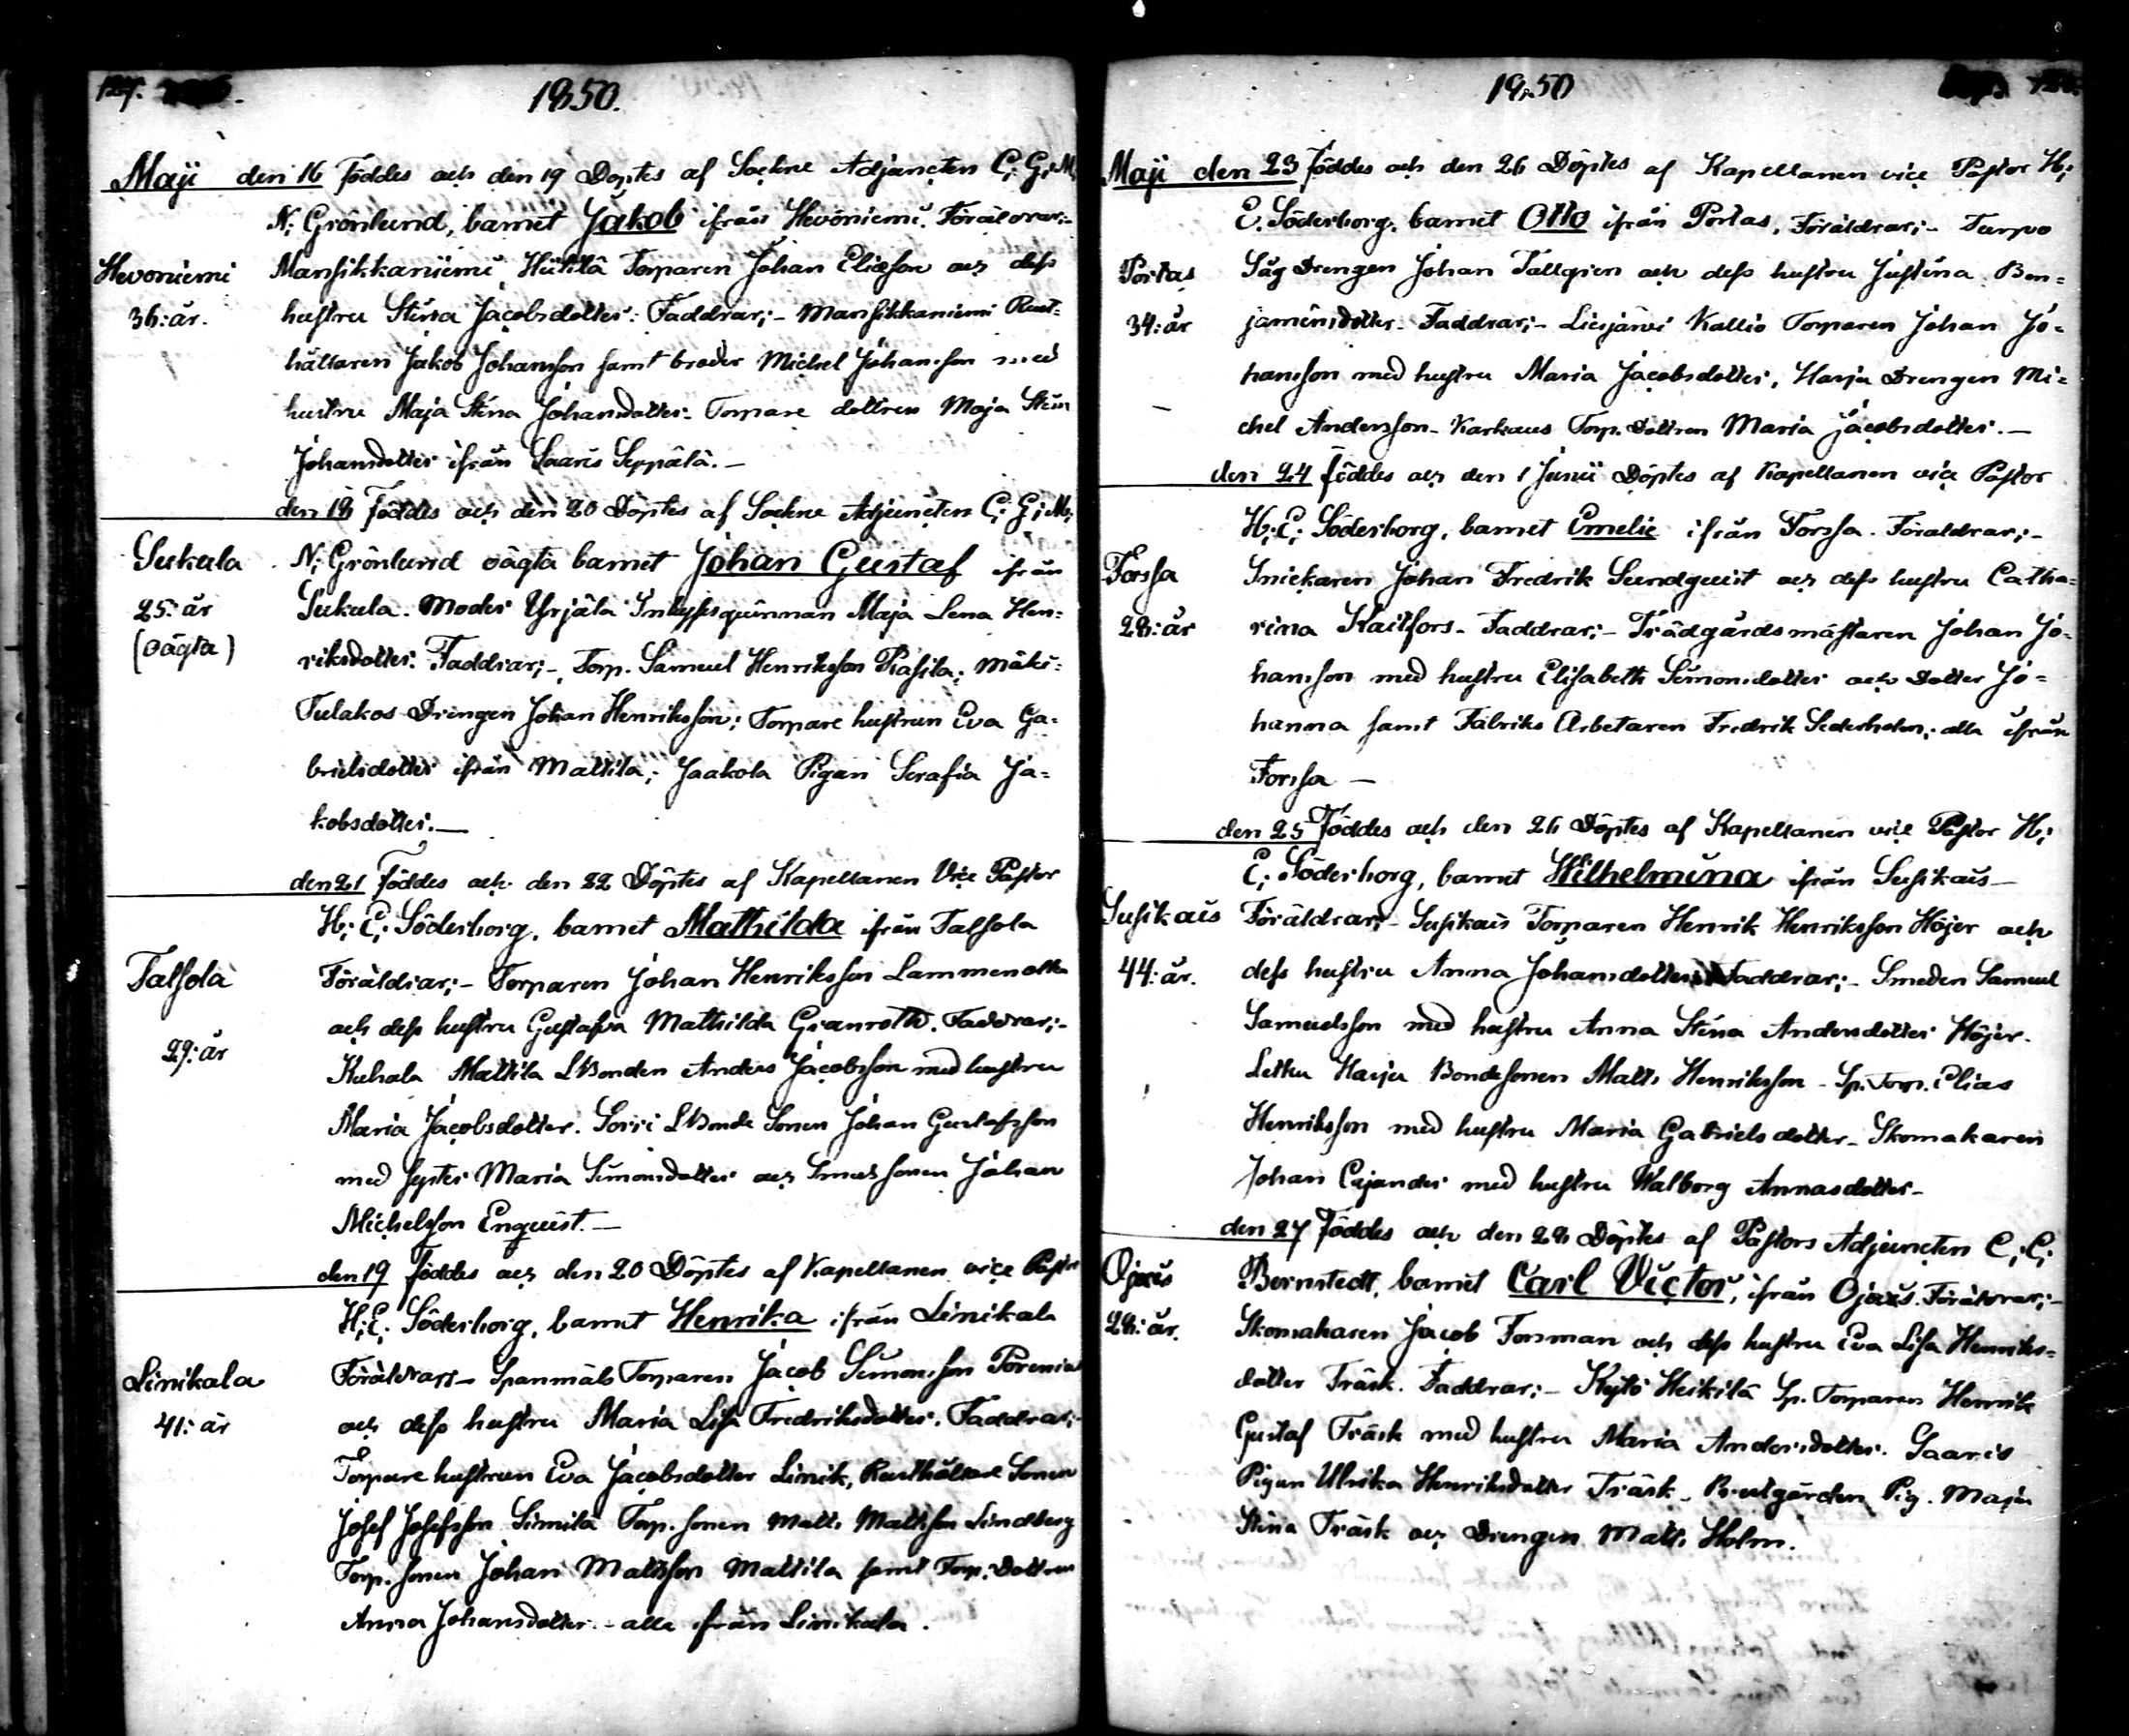 127.
1850.
Maji den 16 Föddes och den 19 Döptes af Sockne Adjuncten C; G; M;
N; Grönlund, barnet Jakob ifrån Hevoniemi. Föräldrar;-
Hevoniemi
36: år.
Mansikkaniemi Hiitilä Torparen Johan Eliæson och dess
hustru Stina Jacobsdotter: Faddrar;- Mansikkaniemi Rust=
hållaren Jakob Johansson samt broder Michel Johansson med
hustru Maja Stina Johansdotter- Torpare dottren Maja Stina
Johansdotter ifrån Saaris Seppälä.-
den 18 Föddes och den 20 Döptes af Sockne Adjuncten C; G; M;
Sukula
25: år
(oägta)
N; Grönlund oägta barnet Johan Gustaf ifrån
Sukula. Moder Yrjälä Inhysesqvinnan Maja Lena Hen=
riksdotter. Faddrar;- Torp. Samuel Henriksson Rasila; Mäki=
Tulakos Drengen Johan Henriksson; Torpare hustrun Eva Ga=
brielsdotter ifrån Mattila; Jaakola Pigan Serafia Ja=
kobsdotter.-
den 21 Föddes och den 22 Döptes af Kapellanen Vice Pastor
H; E; Söderborg, barnet Mathilda ifrån Talsola
Talsola
29: år
Föräldrar;- Torparen Johan Henriksson Lammenalka
och dess hustru Gustafva Mathilda Granroth. Faddrar;-
Kuhala Mattila LBonden Anders Jacobsson med hustru
Maria Jacobsdotter. Sorri LBonde Sonen Johan Gustafsson
med syster Maria Simonsdotter och Smeds sonen Johan
Michelsson Enquist.-
den 19 Föddes och den 20 Döptes af Kapellanen vice Pastor
H; E; Söderborg, barnet Henrika ifrån Linikala
Linikala
41: år
Föräldrar;- Spanmåls Torparen Jacob Simonsson
och dess hustru Maria Lisa Fredriksdotter. Faddrar;-
Torpare hustrun Eva Jacobsdotter Linik, Rusthållare Sonen
Josef Josefsson Simila Torp. sonen Matts Mattsson Lindberg
Torp. sonen Johan Mattsson Mattila samt Torp. Dottren
Anna Johansdotter.- alla ifrån Linikala.
1850
Maji den 23 Föddes och den 26 Döptes af Kapellanen vice Pastor H;
E. Söderborg, barnet Otto ifrån Portas, Föräldrar;- Turpo
Portas
34: år
Såg Drengen Johan Tallgren och dess hustru Justina Ben=
jaminsdotter- Faddrar;- Liesjärvi Kallio Torparen Johan Jo=
hansson med hustru Maria Jacobsdotter, Harja Drengen Mi=
chel Andersson- Karkaus Torp. Dottren Maria Jacobsdotter.-
den 24 Föddes och den 1 Junii Döptes af Kapellanen vice Pastor
H; E; Söderborg, barnet Emelie ifrån Forssa. Föräldrar;-
Forssa
28: år
Snickaren Johan Fredrik Sundquist och dess hustru Catha=
rina Kaitfors- Faddrar;- Trädgårdsmästaren Johan Jo=
hansson med hustru Elisabeth Simonsdotter och Dotter Jo=
hanna samt Fabriks Arbetaren Fredrik Sederholm; alla ifrån
Forssa -
den 25 Föddes och den 26 Döptes af Kapellanen vice Pastor H;
E; Söderborg, barnet Wilhelmina ifrån Susikais-
Susikais
44: år.
Föräldrar;- Susikais Torparen Henrik Henriksson Höjer och
dess hustru Anna Johansdotter. Faddrar;- Smeden Samuel
Samuelsson med hustru Anna Stina Andersdotter Höjer.
Letku Harju Bondesonen Matts Henriksson- Sp. Torp. Elias
Henriksson med hustru Maria Gabrielsdotter- Skomakaren
Johan Cajander med hustru Walborg Annasdotter-
den 27 Föddes och den 28 Döptes af Pastors Adjuncten C; C;
Ojais
28: år.
Bernstedt, barnet Carl Victor, ifrån Ojais. Föräldrar;-
Skomakaren Jacob Forsman och dess hustru Eva Lisa Henriks=
dotter Träsk. Faddrar;- Kojlö Heikilä Sp. Torparen Henrik
Gustaf Träsk med hustru Maria Andersdotter. Saaris
Pigan Ulrika Henriksdotter Träsk- Pig. Maja
Stina Träsk och Drengen Matts Holm.